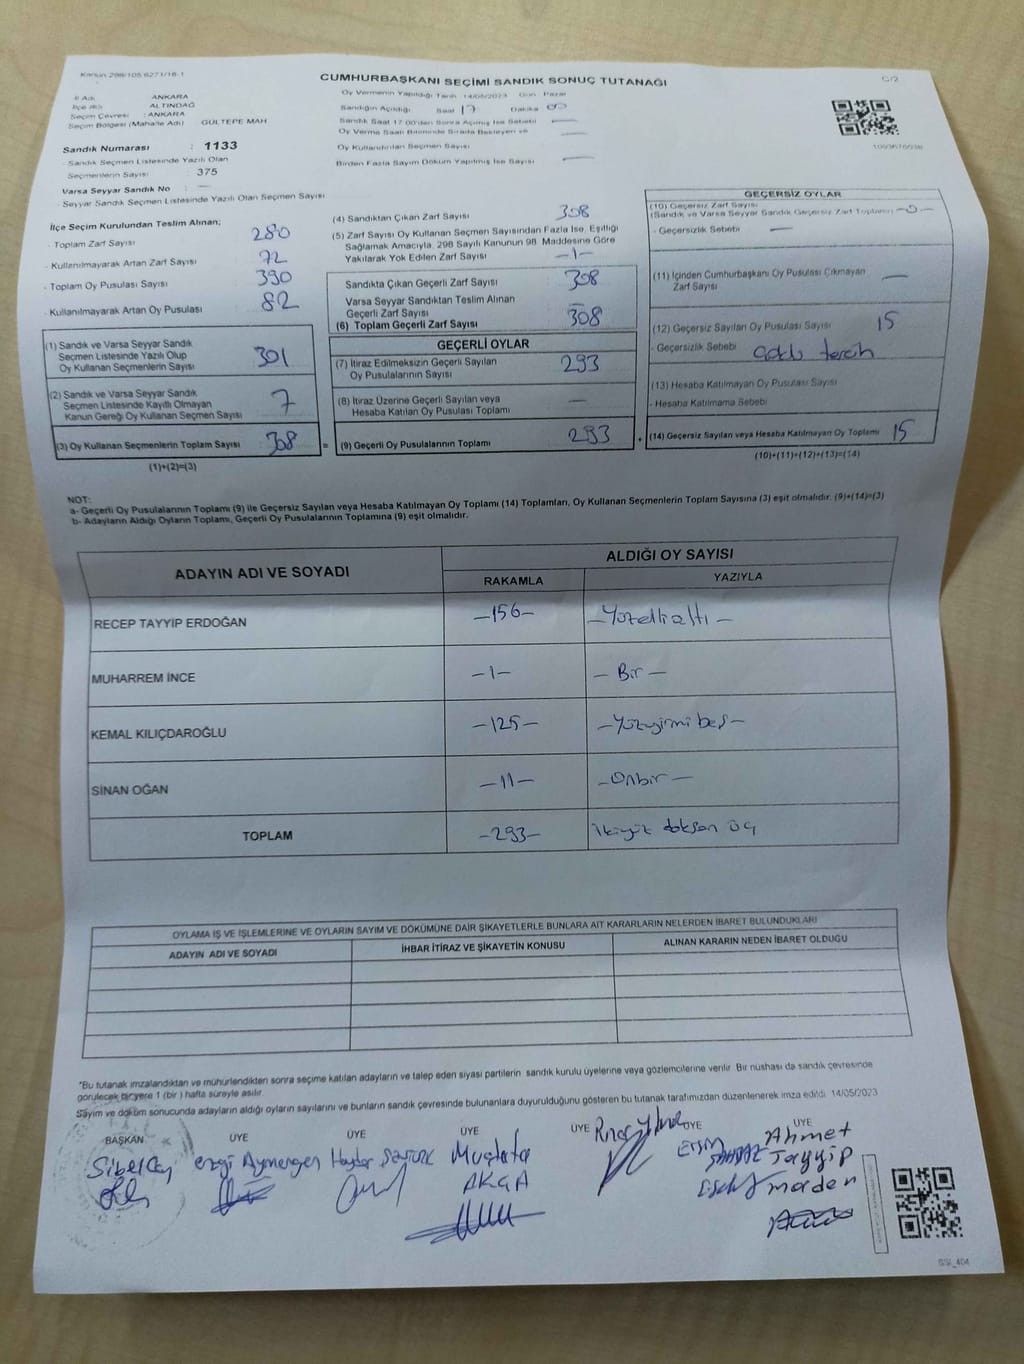 Kanun 298/105 6271/18-1
CUMHURBAŞKANI SEÇİMİ SANDIK SONUÇ TUTANAĞI
C/2
İl Adı ANKARA
İlçe Adı ALTINDAĞ
Seçim Çevresi : ANKARA
Seçim Bölgesi (Mahalle Adı) GÜLTEPE MAH
Sandık Numarası : 1133
- Sandık Seçmen Listesinde Yazılı Olan
Seçmenlerin Sayısı : 375
Varsa Seyyar Sandık No : —
- Seyyar Sandık Seçmen Listesinde Yazılı Olan Seçmen Sayısı
Oy Vermenin Yapıldığı Tarih 14/05/2023 Gün Pazar
Sandığın Açıldığı Saat 17 Dakika 00
Sandık Saat 17:00'den Sonra Açılmış İse Sebebi —
Oy Verme Saati Bitiminde Sırada Bekleyen ve
Oy Kullandırılan Seçmen Sayısı —
Birden Fazla Sayım Döküm Yapılmış İse Sayısı —
İlçe Seçim Kurulundan Teslim Alınan;
- Toplam Zarf Sayısı 280
- Kullanılmayarak Artan Zarf Sayısı 72
- Toplam Oy Pusulası Sayısı 390
- Kullanılmayarak Artan Oy Pusulası 82
(1) Sandık ve Varsa Seyyar Sandık
Seçmen Listesinde Yazılı Olup
Oy Kullanan Seçmenlerin Sayısı 301
(2) Sandık ve Varsa Seyyar Sandık
Seçmen Listesinde Kayıtlı Olmayan
Kanun Gereği Oy Kullanan Seçmen Sayısı 7
(3) Oy Kullanan Seçmenlerin Toplam Sayısı 308 =
(1)+(2)=(3)
(4) Sandıktan Çıkan Zarf Sayısı 308
(5) Zarf Sayısı Oy Kullanan Seçmen Sayısından Fazla İse, Eşitliği
Sağlamak Amacıyla, 298 Sayılı Kanunun 98. Maddesine Göre
Yakılarak Yok Edilen Zarf Sayısı —1—
Sandıkta Çıkan Geçerli Zarf Sayısı 308
Varsa Seyyar Sandıktan Teslim Alınan
Geçerli Zarf Sayısı —
(6) Toplam Geçerli Zarf Sayısı 308
GEÇERLİ OYLAR
(7) İtiraz Edilmeksizin Geçerli Sayılan
Oy Pusulalarının Sayısı 293
(8) İtiraz Üzerine Geçerli Sayılan veya
Hesaba Katılan Oy Pusulası Toplamı —
(9) Geçerli Oy Pusulalarının Toplamı 293 +
GEÇERSİZ OYLAR
(10) Geçersiz Zarf Sayısı
(Sandık ve Varsa Seyyar Sandık Geçersiz Zarf Toplamı) —0—
- Geçersizlik Sebebi —
(11) İçinden Cumhurbaşkanı Oy Pusulası Çıkmayan
Zarf Sayısı —
(12) Geçersiz Sayılan Oy Pusulası Sayısı 15
- Geçersizlik Sebebi çoklu tercih
(13) Hesaba Katılmayan Oy Pusulası Sayısı
- Hesaba Katılmama Sebebi
(14) Geçersiz Sayılan veya Hesaba Katılmayan Oy Toplamı 15
(10)+(11)+(12)+(13)=(14)
NOT:
a- Geçerli Oy Pusulalarının Toplamı (9) ile Geçersiz Sayılan veya Hesaba Katılmayan Oy Toplamı (14) Toplamları, Oy Kullanan Seçmenlerin Toplam Sayısına (3) eşit olmalıdır. (9)+(14)=(3)
b- Adayların Aldığı Oyların Toplamı, Geçerli Oy Pusulalarının Toplamına (9) eşit olmalıdır.
ADAYIN ADI VE SOYADI ALDIĞI OY SAYISI
RAKAMLA YAZIYLA
RECEP TAYYİP ERDOĞAN —156— —Yüzellialtı—
MUHARREM İNCE —1— —Bir—
KEMAL KILIÇDAROĞLU —125— —Yüzyirmi beş—
SİNAN OĞAN —11— —Onbir—
TOPLAM —293— ikiyüz doksan üç
OYLAMA İŞ VE İŞLEMLERİNE VE OYLARIN SAYIM VE DÖKÜMÜNE DAİR ŞİKAYETLERLE BUNLARA AİT KARARLARIN NELERDEN İBARET BULUNDUKLARI
ADAYIN ADI VE SOYADI İHBAR İTİRAZ VE ŞİKAYETİN KONUSU ALINAN KARARIN NEDEN İBARET OLDUĞU
*Bu tutanak imzalandıktan ve mühürlendikten sonra seçime katılan adayların ve talep eden siyasi partilerin sandık kurulu üyelerine veya gözlemcilerine verilir. Bir nüshası da sandık çevresinde
görülecek bir yere 1 (bir) hafta süreyle asılır.
Sayım ve döküm sonucunda adayların aldığı oyların sayılarını ve bunların sandık çevresinde bulunanlara duyurulduğunu gösteren bu tutanak tarafımızdan düzenlenerek imza edildi. 14/05/2023
BAŞKAN ÜYE ÜYE ÜYE ÜYE ÜYE ÜYE
Ezgi Aymergen
Mustafa
AKÇA
Ahmet
Tayyip
maden
SSI_404